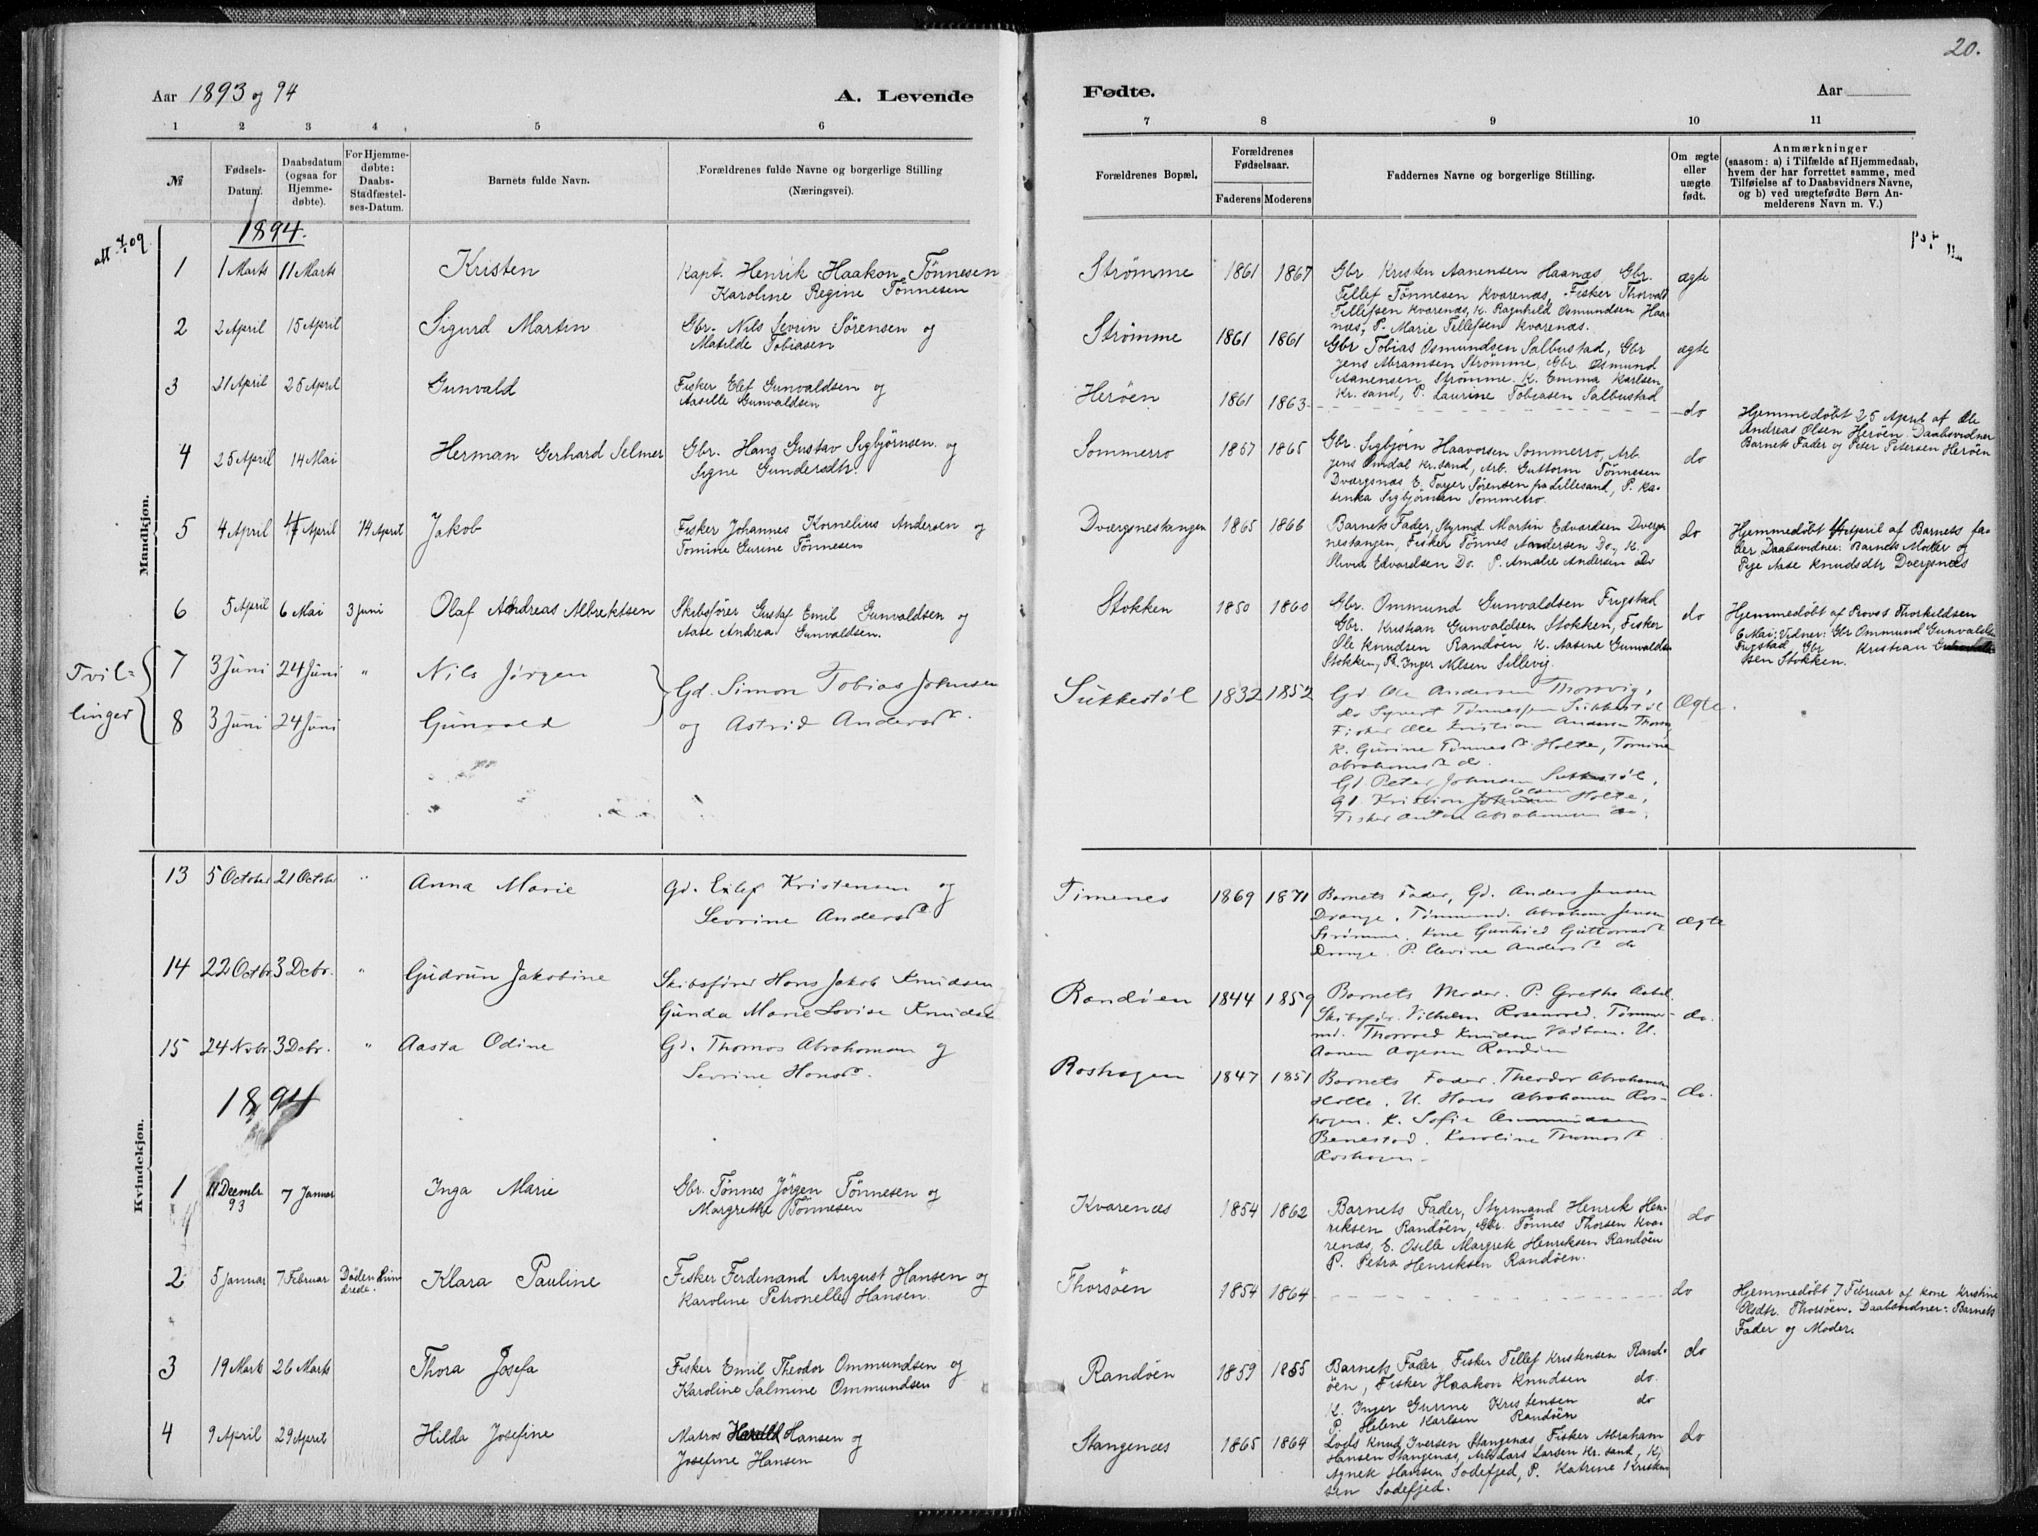 20.
Aar 1893 og 94 A. Levende Fødte. Aar
1 2 3 4 5 6 7 8 9 10 11
№
Fødsels-
Datum.
Daabsdatum
(ogsaa for
Hjemme-
døbte).
For Hjemme-
døbte:
Daabs-
Stadfæstel-
ses-Datum.
Barnets fulde Navn.
Forældrenes fulde Navne og borgerlige Stilling
(Næringsvei).
Forældrenes Bopæl.
Forældrenes
Fødselsaar.
Faderens Moderens
Faddernes Navne og borgerlige Stilling.
Om ægte
eller
uægte
født.
Anmærkninger
(saasom: a) i Tilfælde af Hjemmedaab,
hvem der har forrettet samme, med
Tilføielse af to Daabsvidners Navne,
og b) ved uægtefødte Børn An-
melderens Navn m. V.)
Mandkjøn.
1894.
1 1 Marts 11 Marts Kristen
Kapt. Henrik Haakon Tönnesen
Karoline Regine Tönnesen
Strømme 1861 1867
Gbr. Kristen Aanensen Haanæs Gbr.
Tellef Tønnesen Kvarenæs, Fisker Thorvald
Tellefsen Kvarenæs, K. Ragnhild Osmundsen Haa-
næs, P. Marie Tellefsen Kvarenæs.
ægte
2 2 April 15 April Sigurd Martin
Gbr. Nils Severin Sörensen og
Matilde Tobiasen
Strømme 1861 1861
Gbr Tobias Osmundsen Salbustad, Gbr
Jens Abramsen Strømme, Gbr Osmund
Aanensen Strømme. K. Emma Karlsen
Kr. sand, P. Laurine Tobiasen Salbustad
ægte
3 21 April 25 April Gunvald
Fisker Elef Gunvaldsen og
Aasille Gunvaldsen
Herøen 1861 1863
do
Hjemmedøbt 25 April af Ole
Andreas Olsen Herøen. Daabsvidner
Barnets Fader og Peter Petersen Herøen
4 25 April 14 Mai Herman Gerhard Selmer
Gbr. Hans Gustav Sigbjörnsen og
Signe Gundersdtr.
Sommerro 1857 1865
Gbr. Sigbjørn Haavorsen Sommerro, Arb.
Jens Omdal Kr. sand, Arb. Guttorm Tönnesen
Dværgsnæs, E. Tarjer Sørensen fra Lillesand, P. Ka-
tinka Sigbjørnsen Sommerro.
do
5 4 April 4 April 14 April Jakob
Fisker Johannes Kornelius Andersen og
Tomine Gurine Tönnesen
Dværgnestangen 1865 1866
Barnets Fader, Styrmd Martin Edvardsen Dværgs-
nestangen, Fisker Tönnes Andersen Do, K.
Olivia Edvardsen Do. P. Amalie Andersen Do
do
Hjemmedøbt 4 April af Barnets Fa-
der Daabsvidner: Barnets Moder og
Pige Aase Knudsdtr Dvergsnes
6 5 April 6 Mai 3 Juni Olaf Andreas Albrektsen
Skibsfører Gustaf Emil Gunvaldsen og
Aase Andrea Gunvaldsen.
Stokken 1850 1860
Gbr. Ommund Gunvaldsen Frigstad
Gbr. Kristian Gunvaldsen Stokken, Fisker
Ole Knudsen Randøen K. Aasine Gunvaldsen
Stokken, P. Inger Nilsen Sillevig.
do
Hjemmedøbt af Provst Thorkildsen
6 Mai: Vidner: Gbr Ommund Gunvaldsen
Frigstad Gbr Kristian Gunvald-
sen Stokken.
Tvil-
linger
7 3 Juni 24 Juni " Nils Jørgen
8 3 Juni 24 Juni Gunvald
Gd. Simon Tobias Johnsen
og Astrid Andersdr.
Sukkestøl 1832 1852
Gd Ole Andersen Thorsvig,
do Syvert Tønnessen Sukkestøl
Fisker Ole Kristian Andersen Thorsv,
K. Gurine Tønnesdr. Holte, Tomine
Abrahamsdr do.
Gd. Peter Johnsen Sukkestøl,
Gd. Kristian Olsen Holte,
Fisker Anton Abrahamsen do.
Ægte.
Kvindekjøn.
13 5 October 21 October " Anna Marie
Gd. Eilef Kristensen og
Sevrine Andersdr
Timenes 1869 1871
Barnets Fader, Gd. Anders Jensen
Drange, Tømmermd. Abraham Jensen
Strømme. Kone Gunhild Guttormsdr
Drange. P. Elevine Andersdr do
ægte
14 22 Octbr. 3 Debr. " Gudrun Jakobine
Skibsfører Hans Jakob Knudsen
Gunda Marie Lovise Knudsen
Randøen 1844 1859
Barnets Moder. P. Grethe Aabel.
Skibsfør. Vilhelm Rosenvold. Tømmer-
md. Thorvald Knudsen
Aanen Aagesen Randøen
do.
15 24 Nvbr. 3 Debr. " Aasta Odine
Gd. Thomas Abrahamsen og
Sevrine Hansdr.
Roshagen 1847 1851
Barnets Fader. Theodor Abrahamsen
Holte. U. Hans Abrahamsen Ros-
hagen. K. Sofie Ommundsen
Benestad. Karoline Thomasdr
Roshagen.
do.
1894
1 11 Decmbr 93 7 Januar Inga Marie
Gbr. Tönnes Jörgen Tönnesen og
Margrethe Tönnesen
Kvarenæs 1854 1862
Barnets Fader, Styrmand Henrik Hen-
riksen Randøen, Gbr. Tönnes Thorsen Kva-
renæs, E. Osille Margrete Henriksen Randøen
P. Petra Henriksen Randøen.
do
2 5 Januar 7 Februar Døden hin-
drede. Klara Pauline
Fisker Ferdinand August Hansen og
Karoline Petronelle Hansen.
Thorsøen 1854 1864
do
Hjemmedøbt 7 Februar af Kone Kristine
Olsdtr. Thorsøen. Daabsvidner: Barnets
Fader og Moder.
3 19 Marts 26 Marts Thora Josefa
Fisker Emil Theodor Ommundsen og
Karoline Salmine Ommundsen
Randøen 1859 1855
Barnets Fader, Fisker Tellef Kristensen Rand-
öen, Fisker Haakon Knudsen do.
K. Inger Gurine Kristensen do
P. Helene Karlsen Randøen
do
4 9 April 29 April Hilda Josefine
Matros Harald Hansen og
Josefine Hansen
Stangenæs 1865 1864
Lods Knud Iversen Stangenæs, Fisker Abraham
Hansen Stangenæs, Arb. Lars Larsen Kr. sand, K.
Agnete Hansen Sodefjed, P. Katrine Kristian-
sen Sodefjed.
do